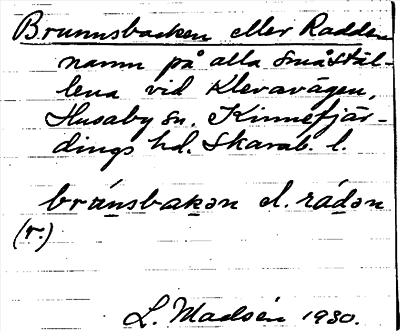 Brunnsbacken eller Radden
namn på alla småstäl-
lena vid Klevavägen,
Husaby sn. Kinnefjär-
dings hd. Skarab. l.
bránsbakən el. rádən
(r.)
L. Madsén 1930.